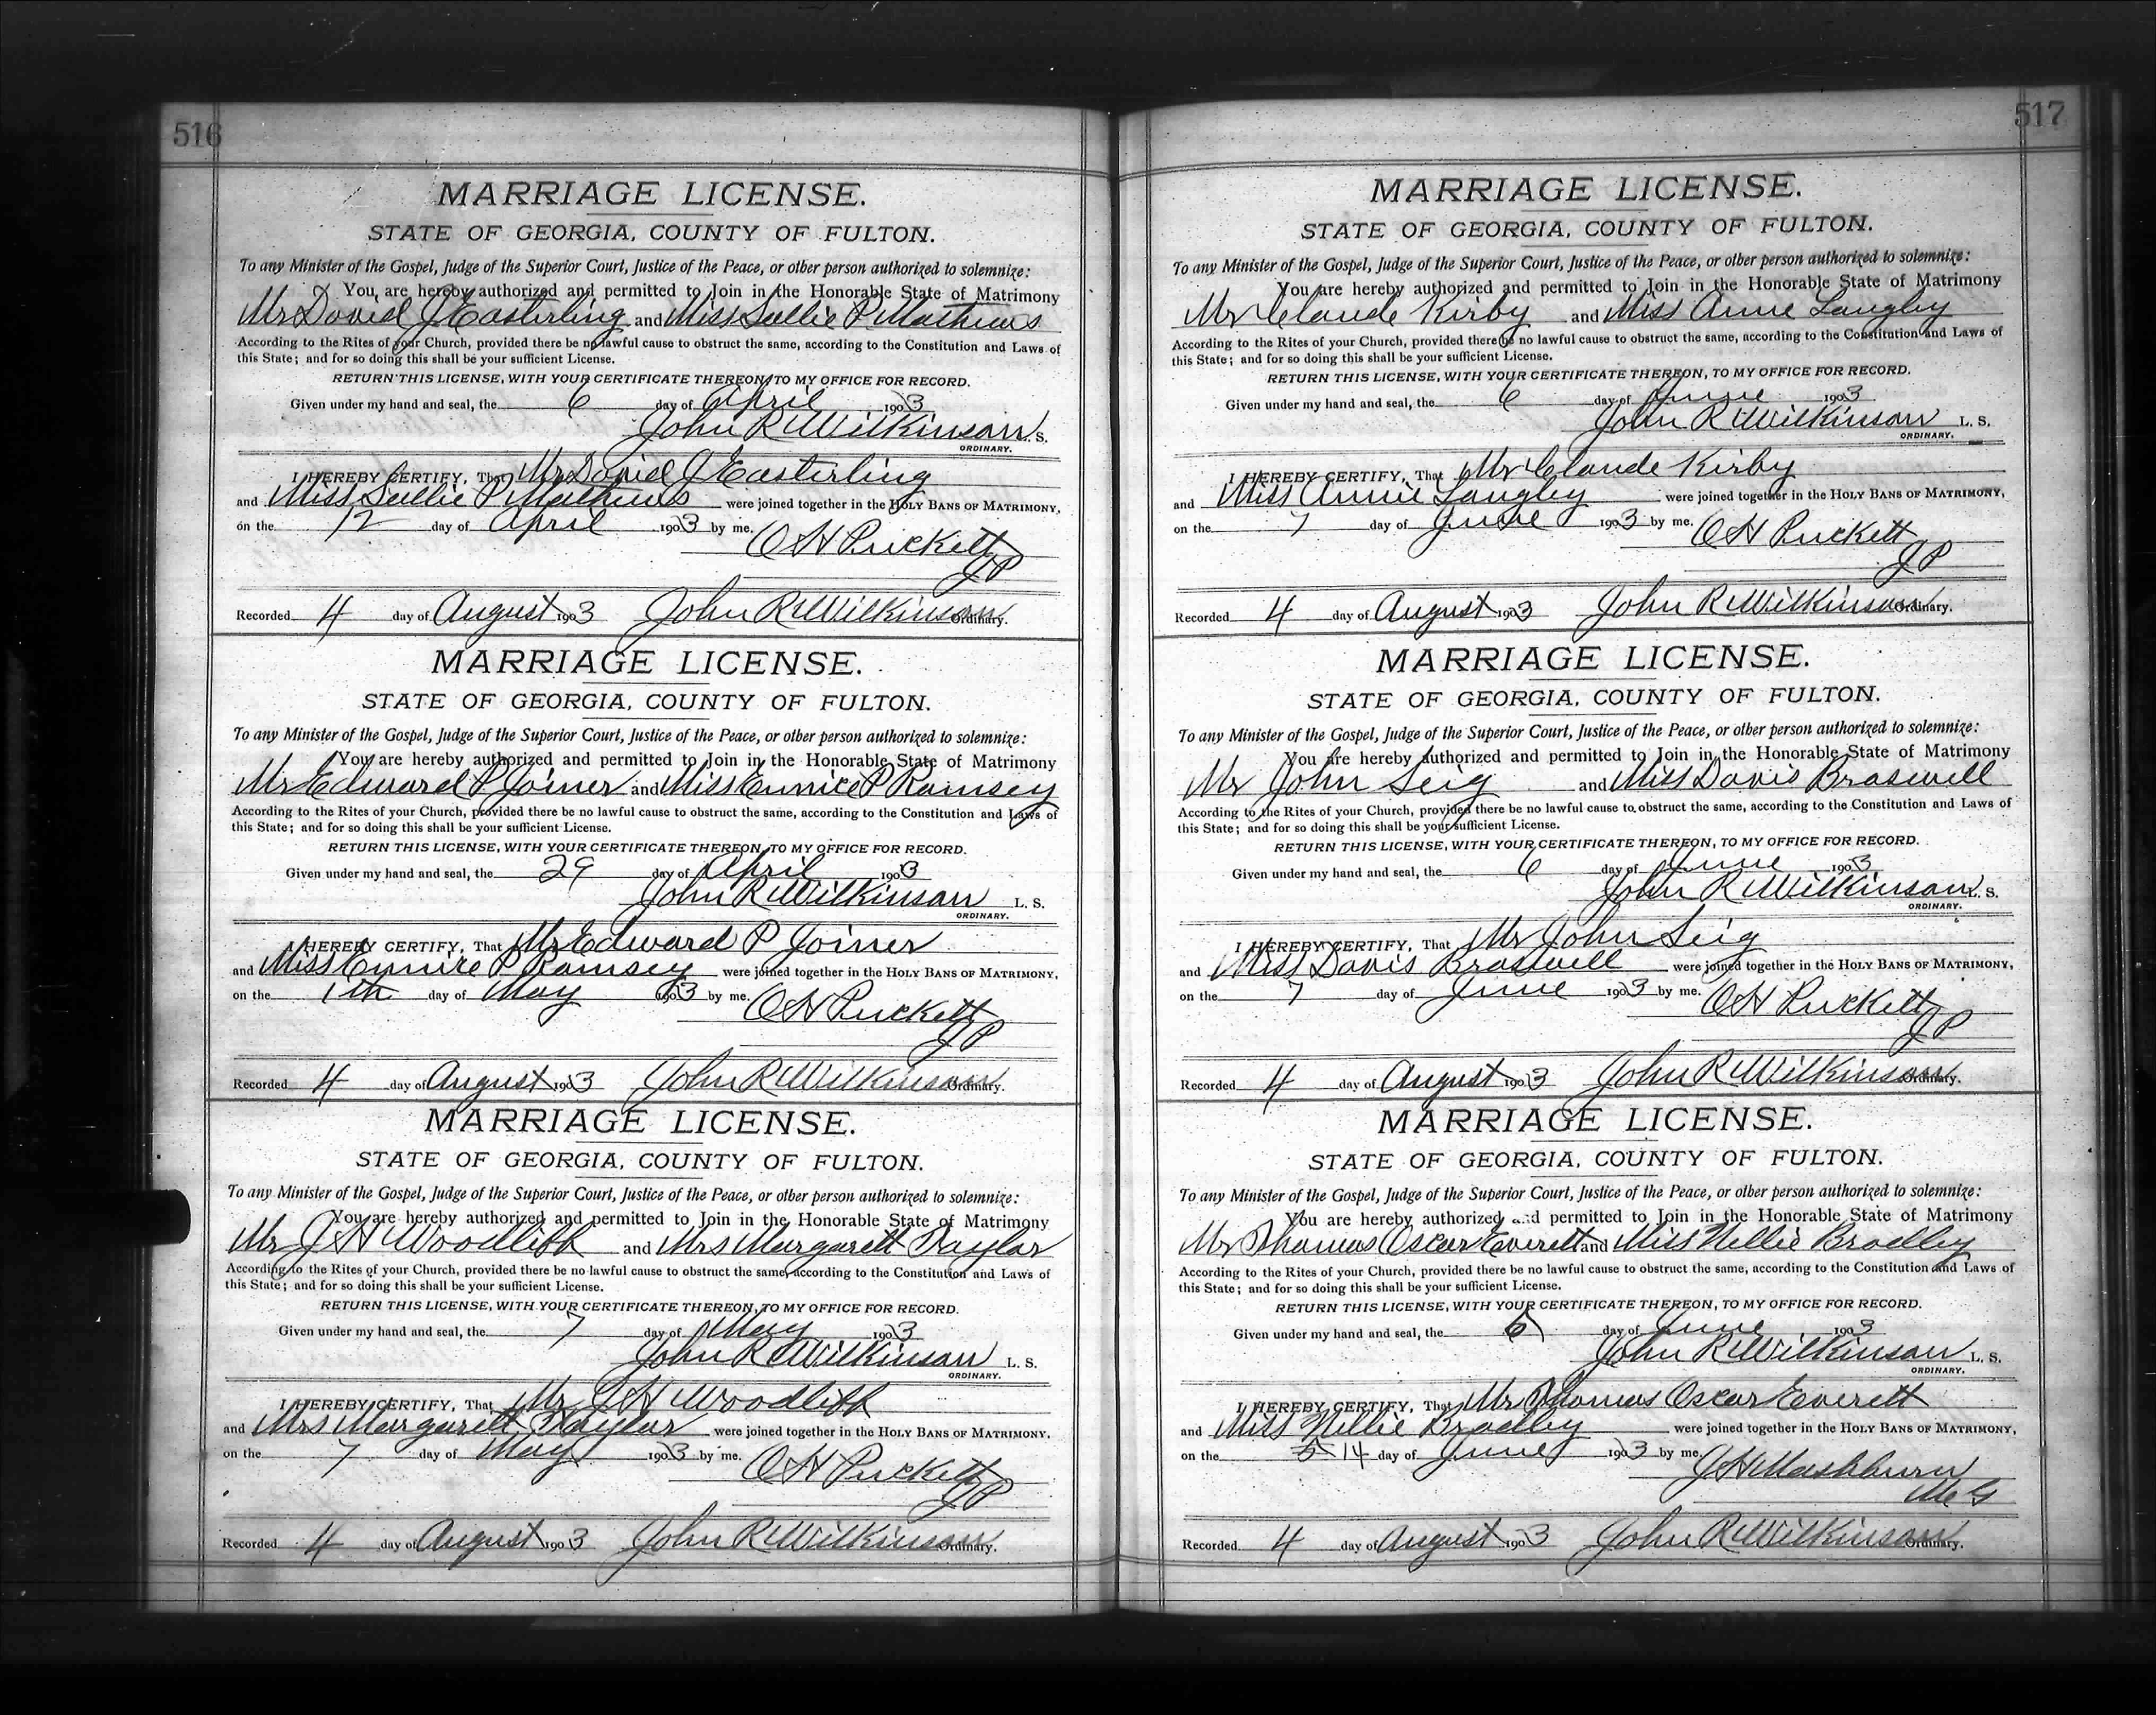 516
MARRIAGE LICENSE.
STATE OF GEORGIA, COUNTY OF FULTON.
To any Minister of the Gospel, Judge of the Superior Court, Justice of the Peace, or other person authorized to solemnize:
You are hereby authorized and permitted to Join in the Honorable State of Matrimony
Mr David J Easterling and Miss Sallie P Mathews
According to the Rites of your Church, provided there be no lawful cause to obstruct the same, according to the Constitution and Laws of
this State; and for so doing this shall be your sufficient License.
RETURN THIS LICENSE, WITH YOUR CERTIFICATE THEREON, TO MY OFFICE FOR RECORD.
Given under my hand and seal, the 6 day of April 1903
John R Wilkinson L. S.
ORDINARY.
I HEREBY CERTIFY, That Mr David J Easterling
and Miss Sallie P Mathews were joined together in the HOLY BANS OF MATRIMONY,
on the 12 day of April 1903 by me. O H Puckett
JP
Recorded 4 day of August 1903 John R Wilkinson Ordinary.
MARRIAGE LICENSE.
STATE OF GEORGIA, COUNTY OF FULTON.
To any Minister of the Gospel, Judge of the Superior Court, Justice of the Peace, or other person authorized to solemnize:
You are hereby authorized and permitted to Join in the Honorable State of Matrimony
Mr Edward P Joiner and Miss Eunice P Ramsey
According to the Rites of your Church, provided there be no lawful cause to obstruct the same, according to the Constitution and Laws of
this State; and for so doing this shall be your sufficient License.
RETURN THIS LICENSE, WITH YOUR CERTIFICATE THEREON, TO MY OFFICE FOR RECORD.
Given under my hand and seal, the 29 day of April 1903
John R Wilkinson L. S.
ORDINARY.
I HEREBY CERTIFY, That Mr Edward P Joiner
and Miss Eunice P Ramsey were joined together in the HOLY BANS OF MATRIMONY,
on the 1th day of May 1903 by me. O H Puckett
JP
Recorded 4 day of August 1903 John R Wilkinson Ordinary.
MARRIAGE LICENSE.
STATE OF GEORGIA, COUNTY OF FULTON.
To any Minister of the Gospel, Judge of the Superior Court, Justice of the Peace, or other person authorized to solemnize:
You are hereby authorized and permitted to Join in the Honorable State of Matrimony
Mr J H Woodliff and Mrs Margarett Taylor
According to the Rites of your Church, provided there be no lawful cause to obstruct the same, according to the Constitution and Laws of
this State; and for so doing this shall be your sufficient License.
RETURN THIS LICENSE, WITH YOUR CERTIFICATE THEREON, TO MY OFFICE FOR RECORD.
Given under my hand and seal, the 7 day of May 1903
John R Wilkinson L. S.
ORDINARY.
I HEREBY CERTIFY, That Mr J H Woodliff
and Mrs Margarett Taylor were joined together in the HOLY BANS OF MATRIMONY,
on the 7 day of May 1903 by me. O H Puckett
JP
Recorded 4 day of August 1903 John R Wilkinson Ordinary.
517
MARRIAGE LICENSE.
STATE OF GEORGIA, COUNTY OF FULTON.
To any Minister of the Gospel, Judge of the Superior Court, Justice of the Peace, or other person authorized to solemnize:
You are hereby authorized and permitted to Join in the Honorable State of Matrimony
Mr Claude Kirby and Miss Annie Langley
According to the Rites of your Church, provided there be no lawful cause to obstruct the same, according to the Constitution and Laws of
this State; and for so doing this shall be your sufficient License.
RETURN THIS LICENSE, WITH YOUR CERTIFICATE THEREON, TO MY OFFICE FOR RECORD.
Given under my hand and seal, the 6 day of June 1903
John R Wilkinson L. S.
ORDINARY.
I HEREBY CERTIFY, That Mr Claude Kirby
and Miss Annie Langley were joined together in the HOLY BANS OF MATRIMONY,
on the 7 day of June 1903 by me. O H Puckett
JP
Recorded 4 day of August 1903 John R Wilkinson Ordinary.
MARRIAGE LICENSE.
STATE OF GEORGIA, COUNTY OF FULTON.
To any Minister of the Gospel, Judge of the Superior Court, Justice of the Peace, or other person authorized to solemnize:
You are hereby authorized and permitted to Join in the Honorable State of Matrimony
Mr John Seig and Miss Davis Braswell
According to the Rites of your Church, provided there be no lawful cause to obstruct the same, according to the Constitution and Laws of
this State; and for so doing this shall be your sufficient License.
RETURN THIS LICENSE, WITH YOUR CERTIFICATE THEREON, TO MY OFFICE FOR RECORD.
Given under my hand and seal, the 6 day of June 1903
John R Wilkinson L. S.
ORDINARY.
I HEREBY CERTIFY, That Mr John Seig
and Miss Davis Braswell were joined together in the HOLY BANS OF MATRIMONY,
on the 7 day of June 1903 by me. O H Puckett
JP
Recorded 4 day of August 1903 John R Wilkinson Ordinary.
MARRIAGE LICENSE.
STATE OF GEORGIA, COUNTY OF FULTON.
To any Minister of the Gospel, Judge of the Superior Court, Justice of the Peace, or other person authorized to solemnize:
You are hereby authorized and permitted to Join in the Honorable State of Matrimony
Mr Thomas Oscar Everett and Miss Nellie Bradley
According to the Rites of your Church, provided there be no lawful cause to obstruct the same, according to the Constitution and Laws of
this State; and for so doing this shall be your sufficient License.
RETURN THIS LICENSE, WITH YOUR CERTIFICATE THEREON, TO MY OFFICE FOR RECORD.
Given under my hand and seal, the 6 day of June 1903
John R Wilkinson L. S.
ORDINARY.
I HEREBY CERTIFY, That Mr Thomas Oscar Everett
and Miss Nellie Bradley were joined together in the HOLY BANS OF MATRIMONY,
on the 14 day of June 1903 by me. J H Mashburn
M G
Recorded 4 day of August 1903 John R Wilkinson Ordinary.